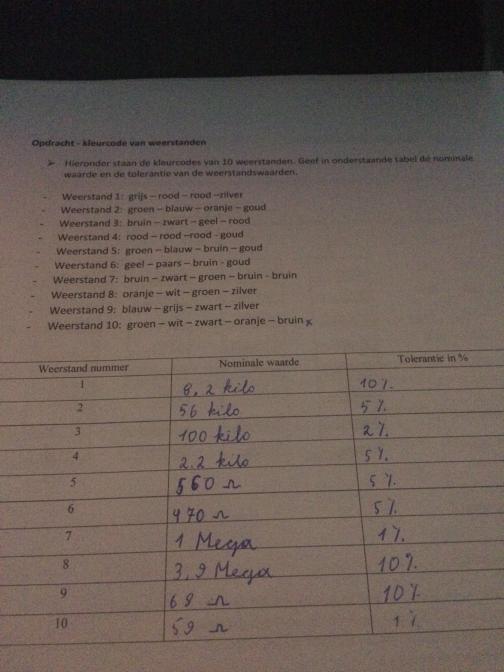 Opdracht - kleurcode van weerstanden
➢ Hieronder staan de kleurcodes van 10 weerstanden. Geef in onderstaande tabel de nominale
waarde en de tolerantie van de weerstandswaarden.
- Weerstand 1: grijs – rood – rood –zilver
- Weerstand 2: groen – blauw – oranje – goud
- Weerstand 3: bruin – zwart – geel – rood
- Weerstand 4: rood – rood –rood - goud
- Weerstand 5: groen – blauw – bruin – goud
- Weerstand 6: geel – paars – bruin - goud
- Weerstand 7: bruin – zwart – groen – bruin - bruin
- Weerstand 8: oranje – wit – groen – zilver
- Weerstand 9: blauw – grijs – zwart – zilver
- Weerstand 10: groen – wit – zwart – oranje – bruin x
Weerstand nummer Nominale waarde Tolerantie in %
1 8,2 kilo 10%
2 56 kilo 5%
3 100 kilo 2%
4 2.2 kilo 5%
5 560 Ω 5%
6 470 Ω 5%
7 1 Mega 1%
8 3,9 Mega 10%
9 68 Ω 10%
10 59 Ω 1%